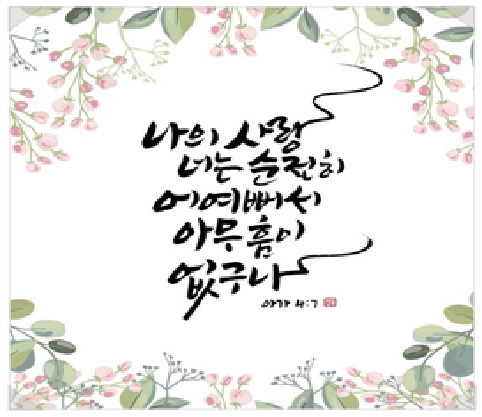 나의 사랑
너는 순전히
어여뻐서
아무 흠이
없구나
아가 4:7